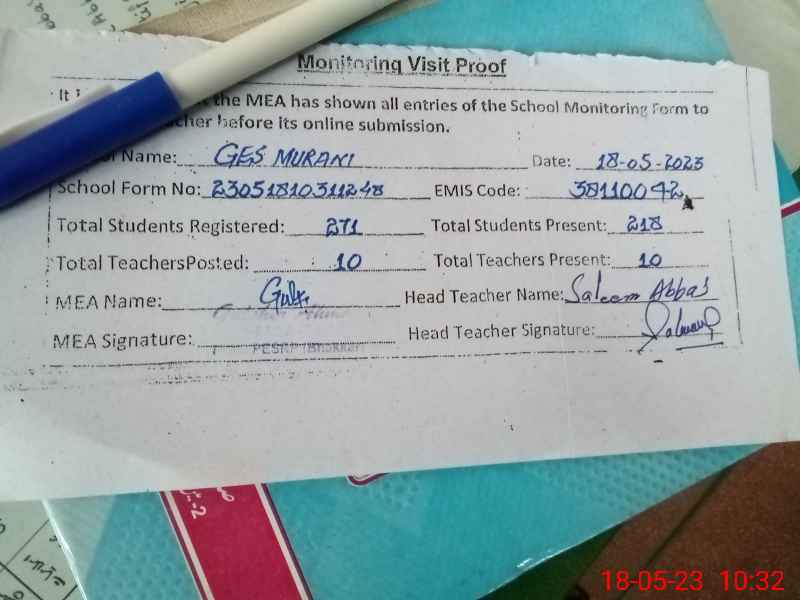 Monitoring Visit Proof
It the MEA has shown all entries of the School Monitoring Form to
before its online submission.
Name: GES MURANI Date: 18-05-2023
School Form No: 23051810311248 EMIS Code: 38110042
Total Students Registered: 271 Total Students Present: 218
Total TeachersPosted: 10 Total Teachers Present: 10
MEA Name: Head Teacher Name: Saleem Abbas
MEA Signature: Head Teacher Signature:
18-05-23 10:32